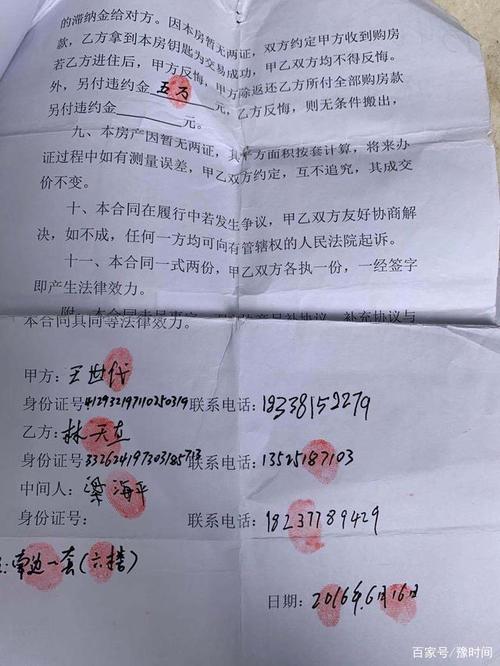 的滞纳金给对方。因本房暂无两证，双方约定甲方收到购房
款，乙方拿到本房钥匙为交易成功，甲乙双方均不得反悔。
若乙方进住后，甲方反悔，甲方除返还乙方所付全部购房款
外，另付违约金 五万 元，乙方反悔，则无条件搬出，
另付违约金 元。
九、本房产因暂无两证，其平方面积按套计算，将来办
证过程中如有测量误差，甲乙双方约定，互不追究，其成交
价不变。
十、本合同在履行中若发生争议，甲乙双方友好协商解
决，如不成，任何一方均可向有管辖权的人民法院起诉。
十一、本合同一式两份，甲乙双方各执一份，一经签字
即产生法律效力。
本合同具同等法律效力。
甲方：王世代
身份证号412932197110250319 联系电话：18338152279
乙方：林天
身份证号 联系电话：13525187103
中间人：梁海平
身份证号： 联系电话：18237789429
一套(六楼)
日期：2016年6月16日
百家号/豫时间